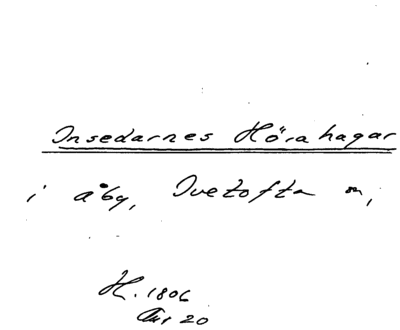 Insedarnes Hörahagar
i Åby, Ivetofta sn,
H. 1806
20